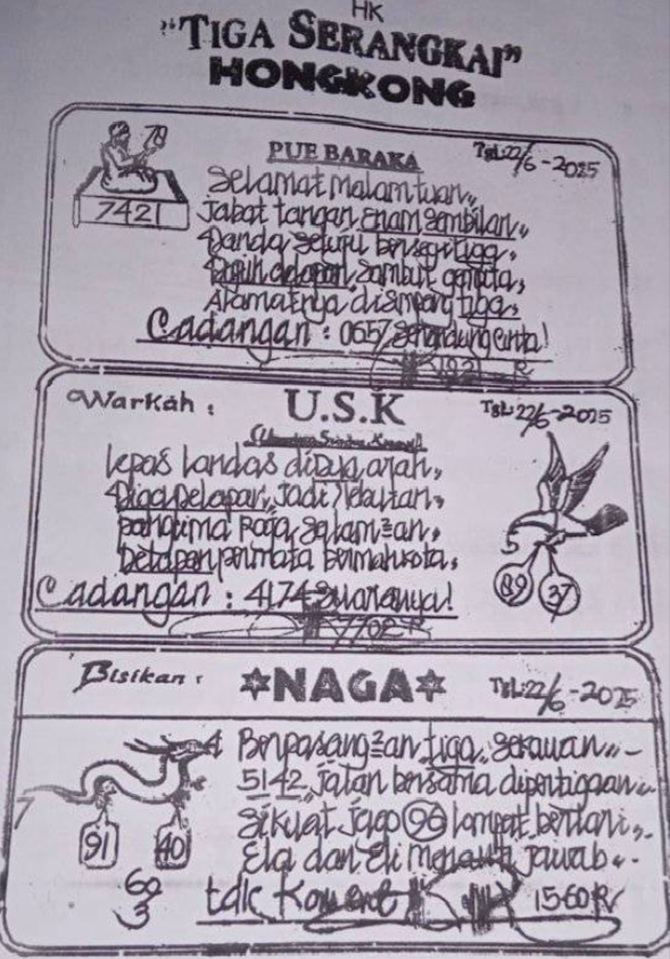 HK
"TIGA SERANGKAI"
HONGKONG
PUE BARAKA
Tgl: 22/6-2025
79
7421
Selamat malam tuan,,
Jabat tangan enam sembilan,,
bersegi tiga,
delapan, sambut
Alamatnya disimpang tiga,
Cadangan : 0657
1921 R
Warkah :
U.S.K
Tgl: 22/6-2025
Lepas landas didua arah,
Tiga Delapan, Jadi rebutan,
Panglima Raja
Delapan permata bermahkota,
5
89
37
Cadangan : 4174 Suaranya!
7702 R
Bisikan :
✡NAGA✡
Tgl: 22/6-2025
4
7
Berpasang²an tiga sekawan,,-
5142, Jalan bersama dipertigaan,,
Sikuat Jago 96 lompat berlari,,-
Ela dan Eli Menanti Jawab,,-
91
40
69
3
tdk
1560 R